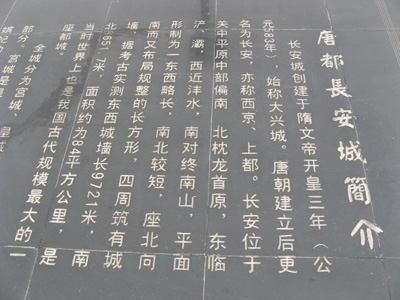 唐都長安城簡介
长安城创建于隋文帝开皇三年（公
元583年），始称大兴城。唐朝建立后更
名为长安、亦称西京、上都。长安位于
关中平原中部偏南，北枕龙首原，东临
浐、灞，西近沣水，南对终南山，平面
形制为一东西略长，南北较短，座北向
南而又布局规整的长方形，四周筑有城
墙。据考古实测东西城墙长9721米，南
北8651.7米，面积约为84平方公里，是
当时世界上也是我国古代规模最大的一
座都城。
全城分为宫城、皇城
部分。宫城是